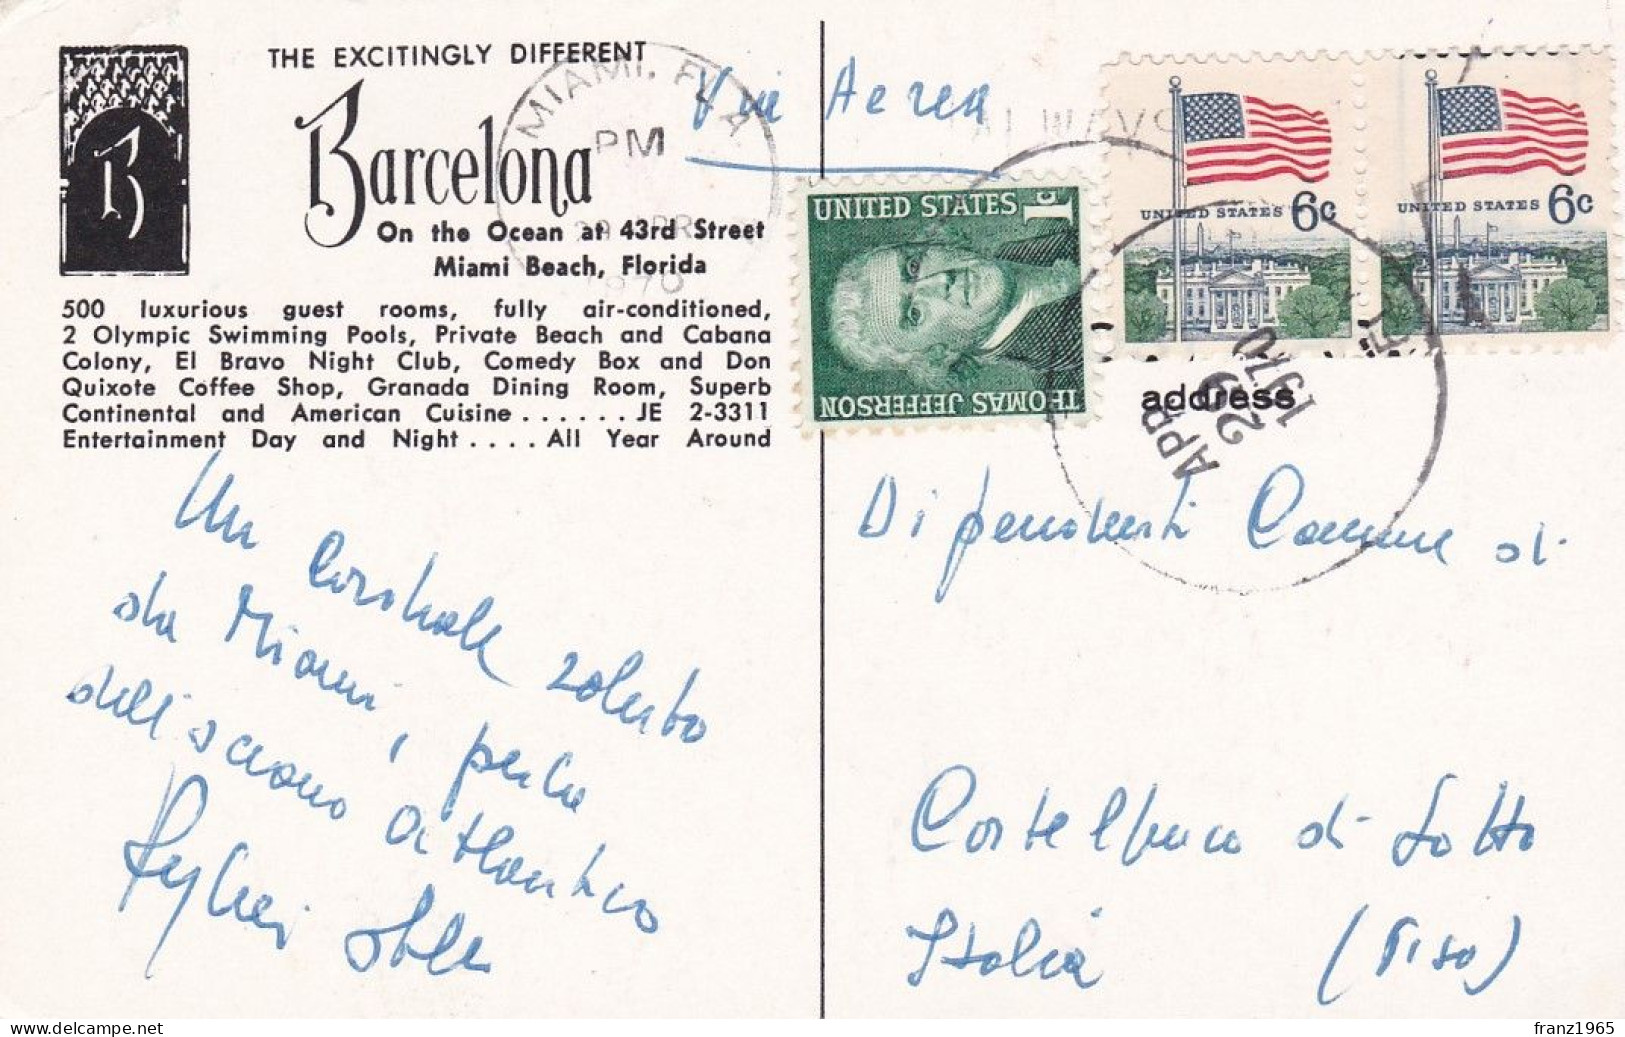 THE EXCITINGLY DIFFERENT
Barcelona
On the Ocean at 43rd Street
Miami Beach, Florida
500 luxurious guest rooms, fully air-conditioned,
2 Olympic Swimming Pools, Private Beach and Cabana
Colony, El Bravo Night Club, Comedy Box and Don
Quixote Coffee Shop, Granada Dining Room, Superb
Continental and American Cuisine . . . . . . JE 2-3311
Entertainment Day and Night . . . . All Year Around
B
MIAMI, FLA
PM
1970
Via Aerea
UNITED STATES 1c
THOMAS JEFFERSON
UNITED STATES 6c
UNITED STATES 6c
APR
29
1970
address
Un cordiale saluto
da Miami, perla
dell'oceano atlantico
Dipendenti Comune di
Castelfranco di Sotto
Italia (Pisa)
franz1965